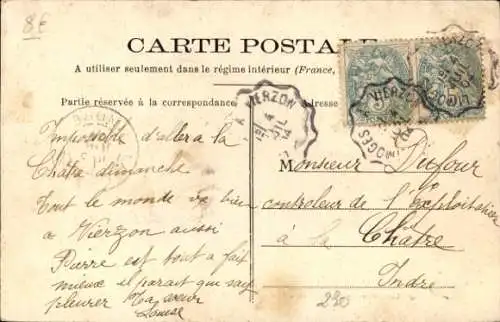 8E
CARTE POSTALE
A utiliser seulement dans le régime intérieur (France,
Partie réservée à la correspondance
Adresse
A VIERZON
4
JUIL
04
VIERZON
LIMOGES
Impossible d'aller à la
Châtre dimanche
Tout le monde va bien
a Vierzon aussi
Pierre est tout a fait
mieux il parait que sa
pleurer Ta sœur
Louise
Monsieur Dufour
controleur de l'Exploitation
à la Châtre
Indre
230